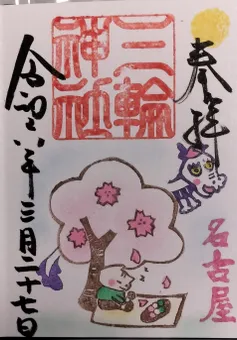 奉拝
三輪
神社
名古屋
令和八年三月二十七日